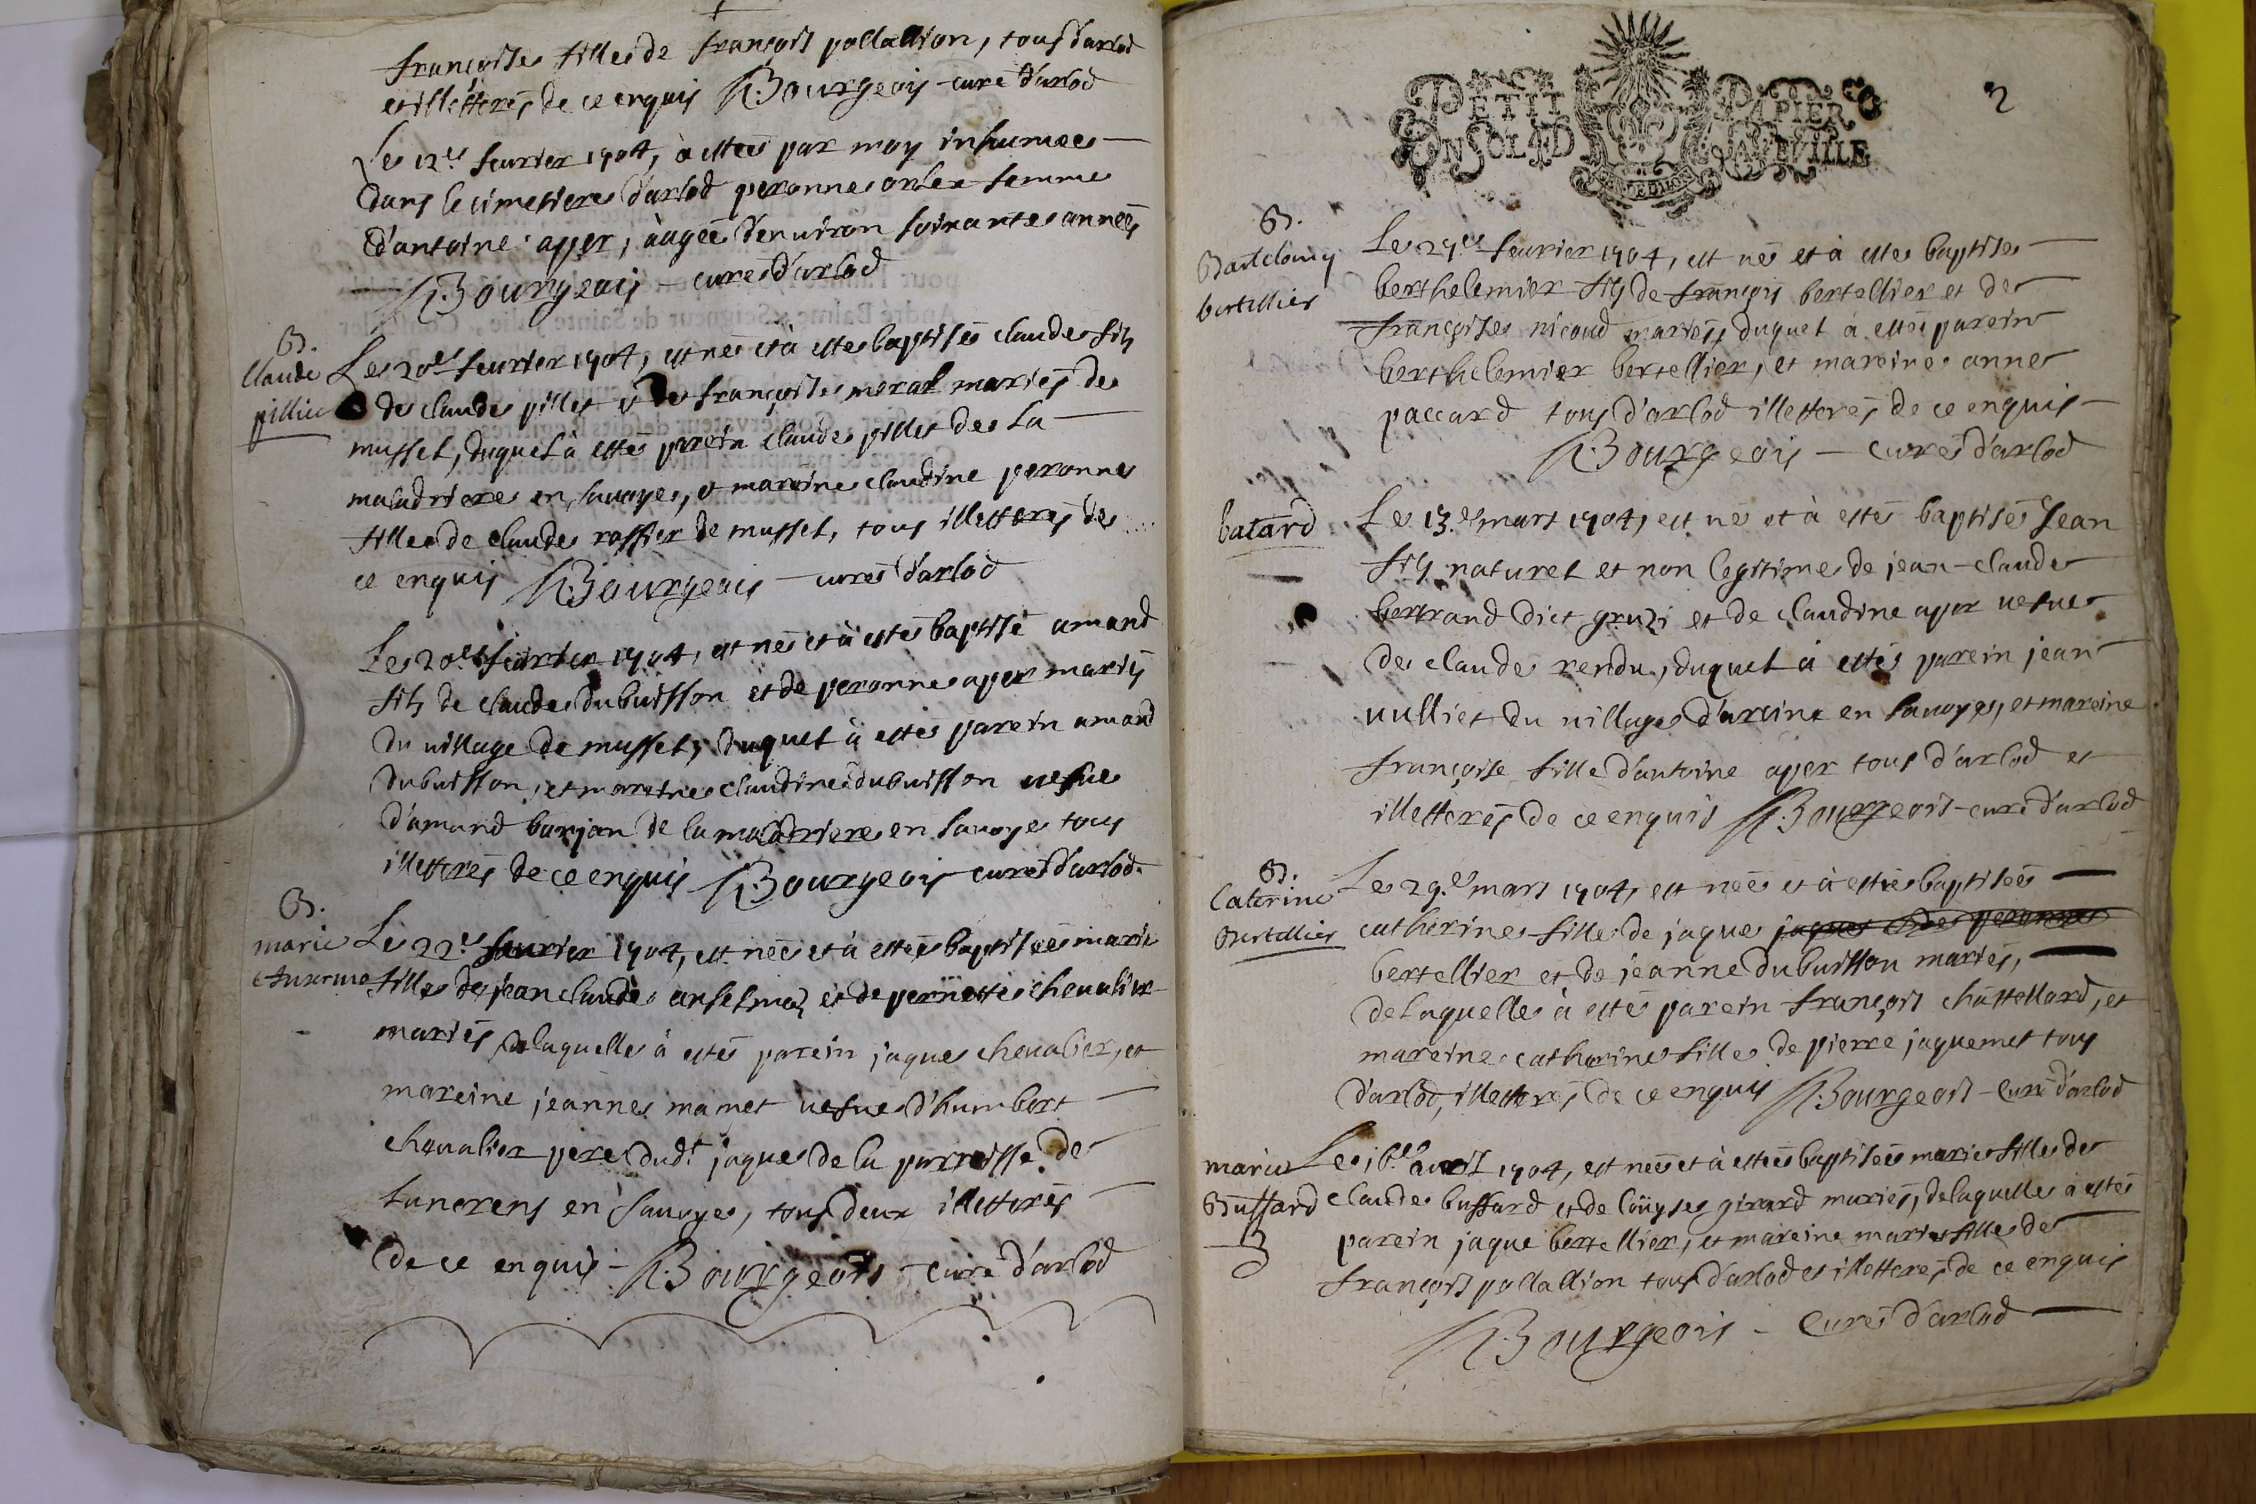 françoise fille de françois pollallion, tous d'arlod
et illetterés de ce enquis Bourgeois curé d'arlod
Le 12.e feurier 1704, à estée par moy inhumée
dans le cimetiere d'arlod peronne orler femme
d'antoine aper, àagée d'enuiron soixante années
Bourgeois curé d'arlod
B.
Claude
pilliu
Le 20.e feurier 1704, est né et à esté baptisé claude fils
de claude pillet et de françoise merat mariés de
musset, duquel à esté parein claude pillet de la
maladriere en sauoye, et mareine claudine peronne
fille de claude raffier de musset, tous illetterés de
ce enquis Bourgeois curé d'arlod
Le 20.e feurier 1704, est né et à esté baptisé amand
fils de claude dubuisson et de peronne aper mariés
du uillage de musset, duquel à esté parein amand
dubuisson, et mareine claudine dubuisson uefue
d'amand barjon de la maladriere en sauoye tous
illetterés de ce enquis Bourgeois curé d'arlod.
B.
marie
Le 22.e feurier 1704, est née et à estée baptisée marie
fille de jean claude anselmoz et de pernette cheualier
mariés, delaquelle à esté parein jaques cheualier, et
mareine jeanne mamet uefue d'humbert
cheualier pere dud.t jaque de la parroisse de
lancrens en sauoye, tous deux illetterés
de ce enquis Bourgeois curé d'arlod
PETIT PAPIER
2
B.
Bartelomy
bertillier
Le 27.e feurier 1704, est né et à esté baptisé
berthelemier fils de françois bertellier et de
françoise nicoud mariés, duquel à esté parein
berthelemier bertellier, et mareine anne
paccard tous d'arlod illetterés de ce enquis
Bourgeois curé d'arlod
batard
Le 13.e mars 1704, est né et à esté baptisé Jean
fils naturel et non legitime de jean-claude
bertrand dict gruzi et de claudine aper uefue
de claude rendu, duquel à esté parein jean
uulliet du uillage d'arcine en sauoye, et mareine
françoise fille d'antoine aper tous d'arlod et
illetterés de ce enquis Bourgeois curé d'arlod
B.
Caterine
Bertillier
Le 29.e mars 1704, est née et à estée baptisée
catherine fille de jaque jaques et de peronne
bertellier et de jeanne dubuisson mariés,
delaquelle à esté parein françois chastellard, et
mareine catherine fille de pierre jaquemet tous
d'arlod, illetterés de ce enquis Bourgeois curé d'arlod
marie
Buffard
Le 16.e auril 1704, est née et à estée baptisée marie fille de
claude buffard et de loüyse girard mariés, delaquelle à esté
parein jaque bertellier, et mareine marie fille de
françois pollallion tous d'arlod et illetterés de ce enquis
Bourgeois Curé d'arlod